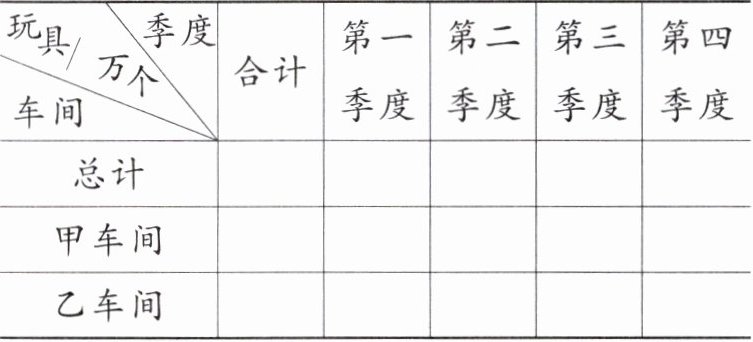 玩具/万个
季度
车间
合计
第一季度
第二季度
第三季度
第四季度
总计
甲车间
乙车间